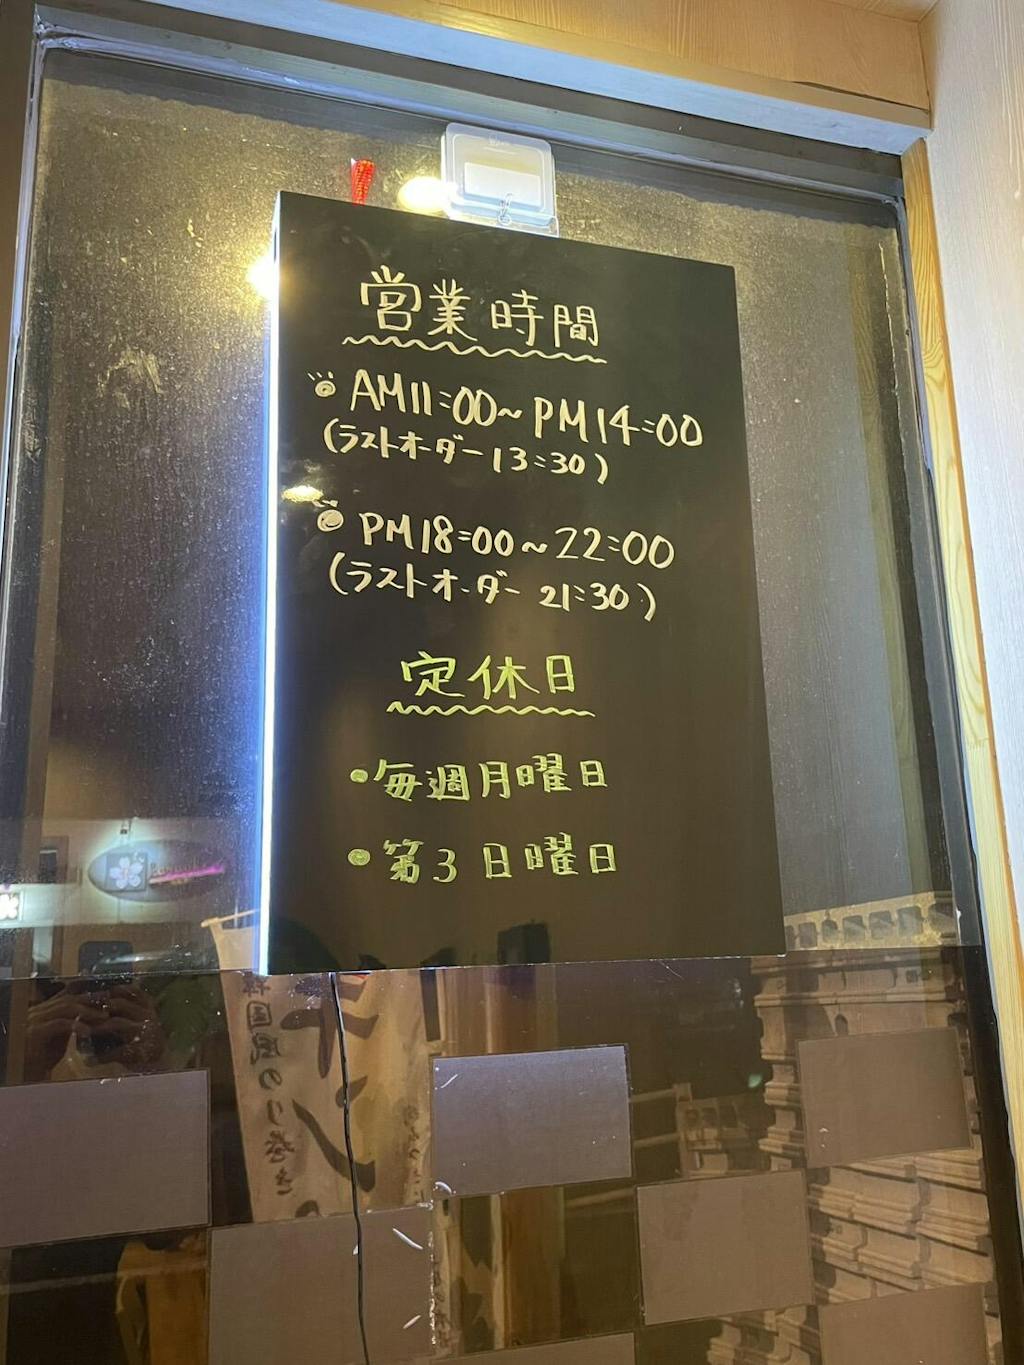 営業時間
AM11:00~PM14:00
(ラストオーダー13:30)
PM18:00~22:00
(ラストオーダー 21:30)
定休日
•毎週月曜日
•第3日曜日
韓国風のり巻き